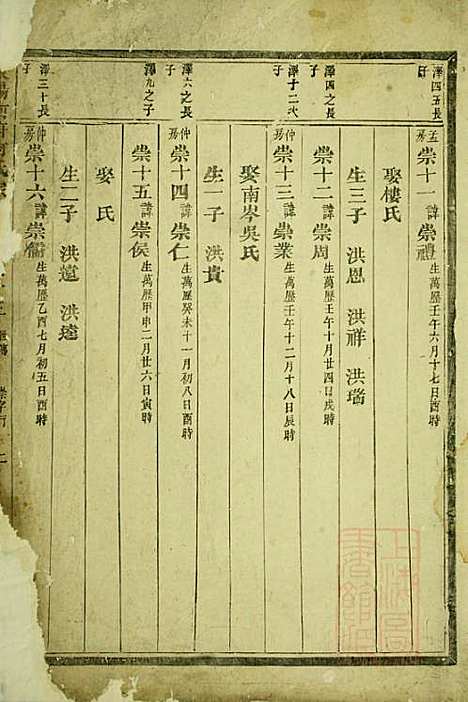 澤四五長子
孟房崇十一諱崇禮生萬歷壬午六月十七日酉時
娶樓氏
生三子 洪恩 洪祥 洪瑙
澤四之長子
崇十二諱崇周生萬歷壬午十月廿四日戌時
澤十二次子
仲房崇十三諱崇業生萬歷壬午十二月十八日辰時
娶南岑吳氏
生一子 洪貴
澤六之長子
仲房崇十四諱崇仁生萬歷癸未十一月初八日酉時
澤九之子
崇十五諱崇侯生萬歷甲申二月廿六日寅時
娶 氏
生二子 洪遠 洪逵
澤三十長子
仲房崇十六諱崇儒生萬歷乙酉七月初五日酉時